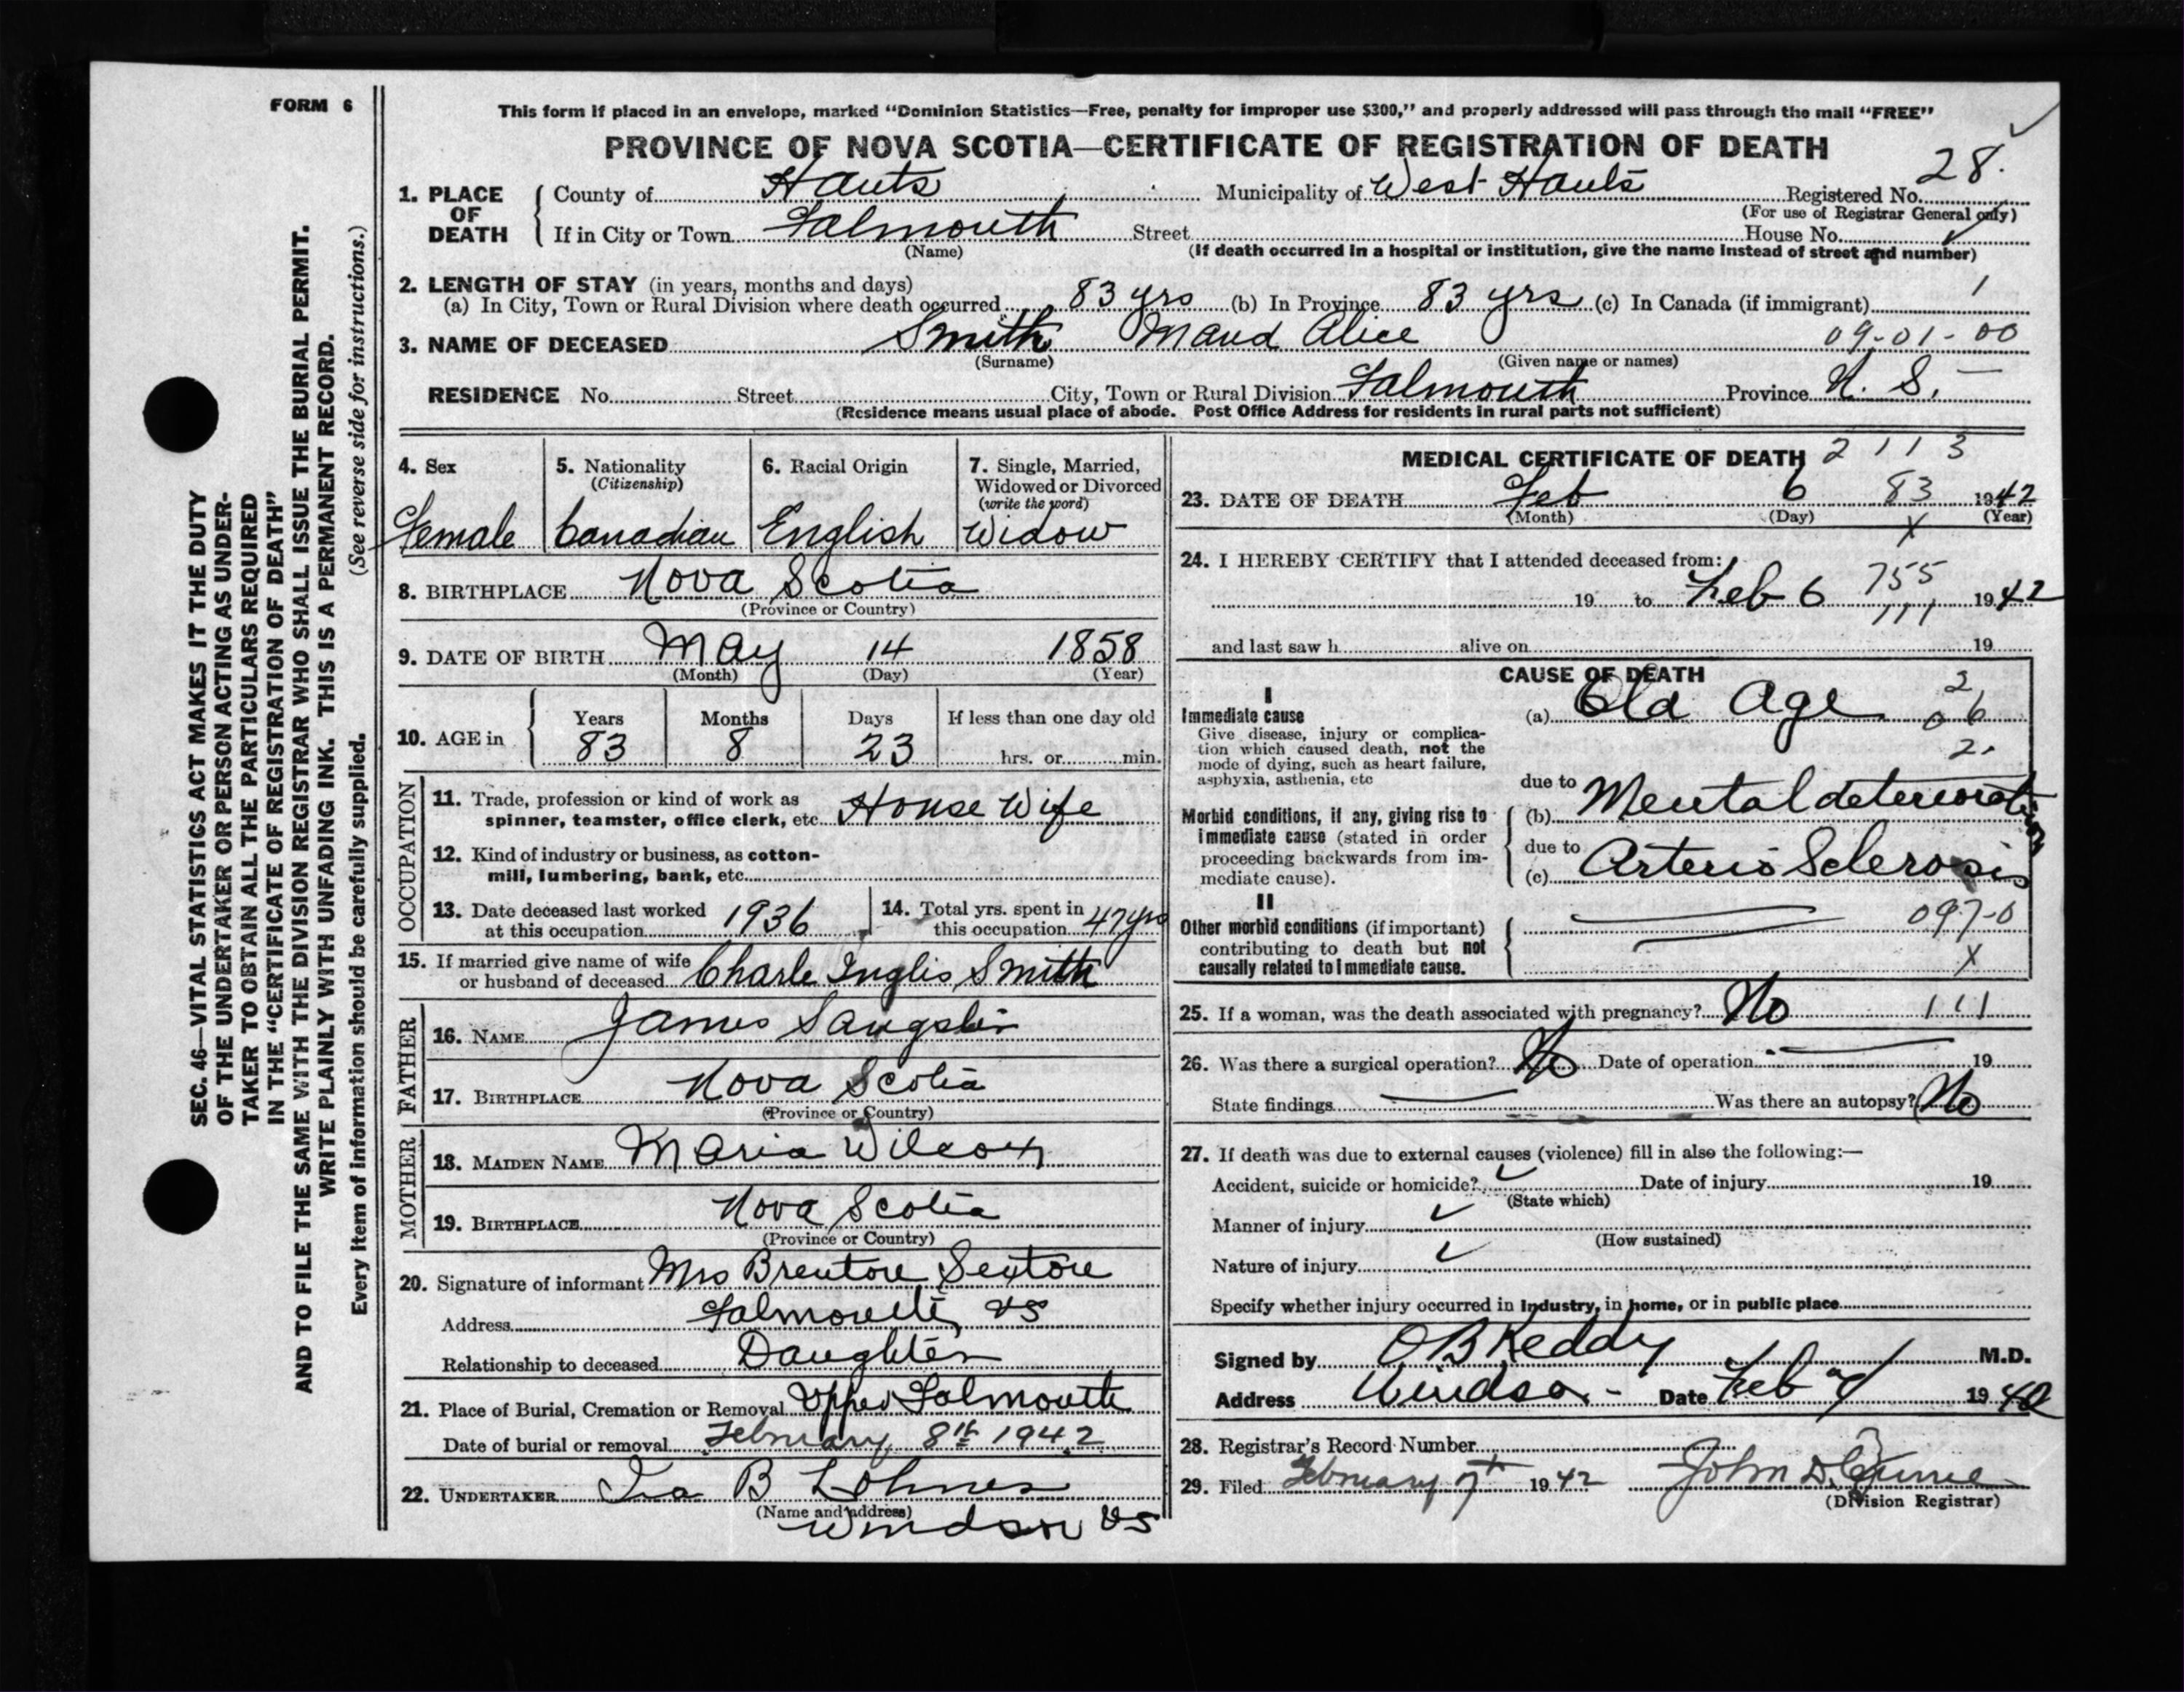 FORM 6
This form if placed in an envelope, marked "Dominion Statistics—Free, penalty for improper use $300," and properly addressed will pass through the mail "FREE"
PROVINCE OF NOVA SCOTIA—CERTIFICATE OF REGISTRATION OF DEATH
28.
1. PLACE OF DEATH County of Hants Municipality of West Hants Registered No.
(For use of Registrar General only)
If in City or Town Falmouth Street House No.
(Name) (If death occurred in a hospital or institution, give the name instead of street and number)
2. LENGTH OF STAY (in years, months and days)
(a) In City, Town or Rural Division where death occurred 83 yrs (b) In Province 83 yrs (c) In Canada (if immigrant) 1
3. NAME OF DECEASED Smith Maud Alice 09-01-00
(Surname) (Given name or names)
RESIDENCE No. Street City, Town or Rural Division Falmouth Province N. S.
(Residence means usual place of abode. Post Office Address for residents in rural parts not sufficient)
4. Sex 5. Nationality (Citizenship) 6. Racial Origin 7. Single, Married, Widowed or Divorced (write the word)
Female Canadian English Widow
8. BIRTHPLACE Nova Scotia
(Province or Country)
9. DATE OF BIRTH May 14 1858
(Month) (Day) (Year)
10. AGE in Years Months Days If less than one day old
83 8 23 hrs. or min.
OCCUPATION
11. Trade, profession or kind of work as
spinner, teamster, office clerk, etc. House Wife
12. Kind of industry or business, as cotton-
mill, lumbering, bank, etc.
13. Date deceased last worked at this occupation 1936 14. Total yrs. spent in this occupation 47 yrs
15. If married give name of wife
or husband of deceased Charle Inglis Smith
FATHER
16. NAME James Sangster
17. BIRTHPLACE Nova Scotia
(Province or Country)
MOTHER
18. MAIDEN NAME Maria Wilcox
19. BIRTHPLACE Nova Scotia
(Province or Country)
20. Signature of informant Mrs Brenton Sexton
Address Falmouth NS
Relationship to deceased Daughter
21. Place of Burial, Cremation or Removal Upper Falmouth
Date of burial or removal February 8th 1942
22. UNDERTAKER Ira B Lohnes
(Name and address)
Windsor NS
MEDICAL CERTIFICATE OF DEATH 2113
23. DATE OF DEATH Feb 6 83 1942
(Month) (Day) (Year)
X
24. I HEREBY CERTIFY that I attended deceased from:
19 to Feb 6 755 1942
111
and last saw h alive on 19
CAUSE OF DEATH
I
Immediate cause (a) Old Age 2 06 2.
Give disease, injury or complica-
tion which caused death, not the
mode of dying, such as heart failure,
asphyxia, asthenia, etc
due to
Morbid conditions, if any, giving rise to (b) Mental deterioration
immediate cause (stated in order due to
proceeding backwards from im-
mediate cause). (c) Arterio Sclerosis
II
Other morbid conditions (if important) 097-0
contributing to death but not
causally related to immediate cause. X
25. If a woman, was the death associated with pregnancy? No 111
26. Was there a surgical operation? No Date of operation 19
State findings Was there an autopsy? No
27. If death was due to external causes (violence) fill in also the following:—
Accident, suicide or homicide? Date of injury 19
(State which)
Manner of injury
(How sustained)
Nature of injury
Specify whether injury occurred in industry, in home, or in public place
Signed by O B Keddy M.D.
Address Windsor - Date Feb 7 19
28. Registrar's Record Number
29. Filed February 7th 1942 John D.
(Division Registrar)
SEC. 46—VITAL STATISTICS ACT MAKES IT THE DUTY
OF THE UNDERTAKER OR PERSON ACTING AS UNDER-
TAKER TO OBTAIN ALL THE PARTICULARS REQUIRED
IN THE "CERTIFICATE OF REGISTRATION OF DEATH"
AND TO FILE THE SAME WITH THE DIVISION REGISTRAR WHO SHALL ISSUE THE BURIAL PERMIT.
WRITE PLAINLY WITH UNFADING INK. THIS IS A PERMANENT RECORD.
Every item of information should be carefully supplied. (See reverse side for instructions.)